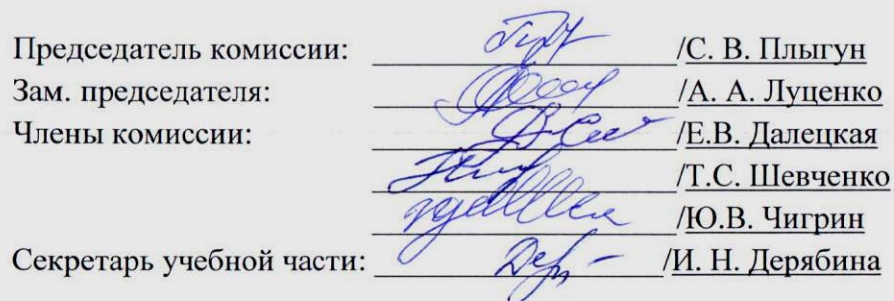 Председатель комиссии: /С. В. Плыгун
Зам. председателя: /А. А. Луценко
Члены комиссии: /Е.В. Далецкая
/Т.С. Шевченко
/Ю.В. Чигрин
Секретарь учебной части: /И. Н. Дерябина